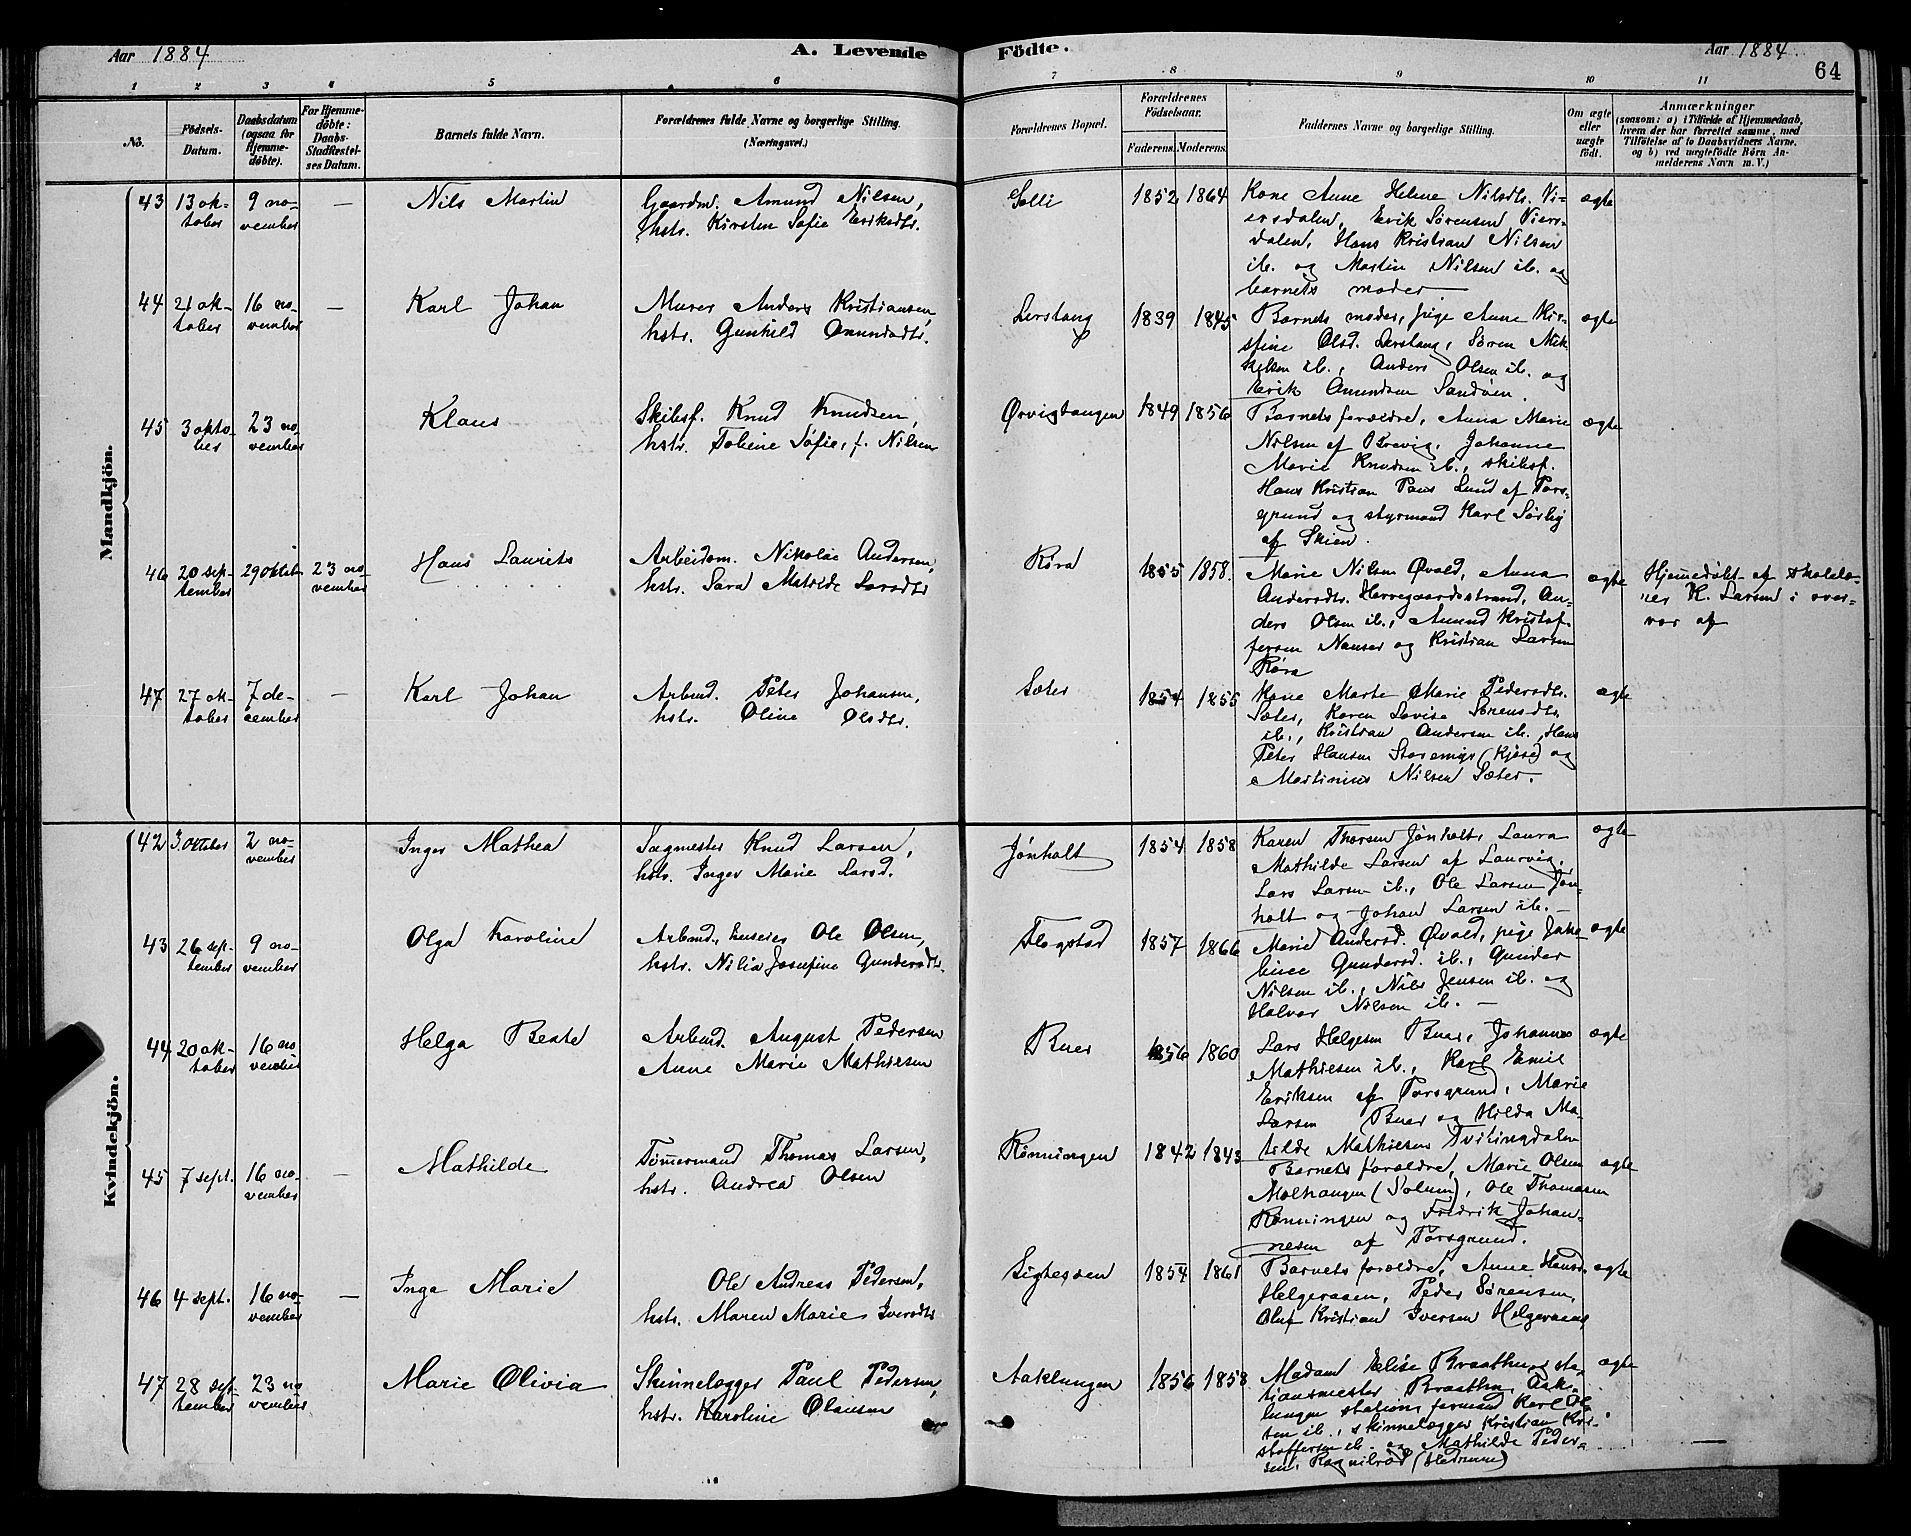 Aar 1884
A. Levende
Födte.
Aar 1884
64
1 2 3 4 5 6 7 8 9 10 11
No.
Födsels-
Datum.
Daabsdatum
(ogsaa for
Hjemme-
döbte).
For Hjemme-
döbte:
Daabs-
Stadfæstel-
ses Datum.
Barnets fulde Navn.
Forældrenes fulde Navne og borgerlige Stilling.
(Næringsvei.)
Forældrenes Bopæl.
Forældrenes
Födselsaar.
Faderens. Moderens.
Faddernes Navne og borgerlige Stilling.
Om ægte
eller
uægte
født.
Anmærkninger
(saasom: a) i Tilfælde af Hjemmedaab,
hvem der har forrettet samme, med
Tilföielse af to Daabsvidners Navne,
og b) ved uægtefödte Börn An-
melderens Navn m. V.)
Mandkjön.
43 13 ok-
tober
9 no-
vember
—
Nils Martin
Gaardm. Amund Nilsen,
hstr. Kirsten Sofie Eriksdtr.
Solli
1852 1864
Kone Anne Helene Nilsdtr. Vi-
ersdalen, Erik Sørensen Viers-
dalen, Hans Kristian Nilsen
ib. og Martin Nilsen ib. og
barnets moder
ægte
44 21 ok-
tober
16 no-
vember
—
Karl Johan
Murer Anders Kristiansen,
hstr. Gunhild Amundsdtr.
Lerstang
1839 1845
Barnets moder, pige Anne Kir-
stine Olsd. Lerstang, Søren Mik-
kelsen ib., Anders Olsen ib. og
Erik Amundsen Sandøen.
ægte
45 3 okto-
ber
23 no-
vember
Klaus
Skibsf. Knud Knudsen,
hstr. Tobine Sofie, f. Nilsen
Ørvigtangen
1849 1856
Barnets forældre, Anna Marie
Nilsen af Brevig, Johanne
Marie Knudsen ib., skibsf.
Hans Kristian Paus Lund af Pors-
grund og styrmand Karl Sørby
af Skien.
ægte
46 20 sep-
tember
29 oktbr
23 no-
vember
Hans Laurits
Arbeidsm. Nikolai Andersen,
hstr. Sara Matilde Larsdtr
Røra
1855 1858.
Marie Nilsen Øvald, Anna
Andersdtr. Herregaardsstrand, An-
ders Olsen ib., Amund Kristof-
fersen Nanset og Kristian Larsen
Røra
ægte
Hjemmedøbt af skolelæ-
rer K. Larsen i over-
vær af
47 27 ok-
tober
7 de-
cember
—
Karl Johan
Arbmd. Peter Johansen,
hstr. Oline Olsdtr.
Sæter
1854 1855
Kone Marte Marie Pedersdtr.
Sæter, Karen Lovise Sørensdtr.
ib., Kristian Andersen ib., Hans
Peter Hansen Storemyr (Kjose) og
Martinius Nilsen Sæter.
ægte
Kvindekjön.
42 3. oktober
2 no-
vember
Inger Mathea
Sagmester Knud Larsen,
hstr. Inger Marie Larsd.
Jønholt
1854 1858
Karen Thorsen Jønholt, Laura
Mathilde Larsen af Laurvig,
Lars Larsen ib., Ole Larsen Jøn-
holt og Johan Larsen ib. —
ægte
43 26 sep-
tember
9 no-
vember
Olga Karoline
Arbmd., huseier Ole Olsen,
hstr. Nilia Josefine Gundersdtr.
Flogstad
1857 1866
Marie Andersd. Øvald, pige Jako-
bine Gundersd. ib., Gunder
Nilsen ib., Nils Jensen ib. og
Halvor Nilsen ib. —
ægte
44 20 ok-
tober
16 no
vember
Helga Beate
Arbmd. August Pedersen
Anne Marie Mathiesen
Buer
1856 1860
Lars Helgesen Buer, Johannes
Mathiesen ib., Karl Emil
Eriksen af Porsgrund, Marie
Larsen Buer og Hilda Ma-
tilde Mathiesen Tvitingdalen
ægte
45 7 sept.
16 no-
vember
—
Mathilde
Tømmermand Thomas Larsen,
hstr. Andrea Olsen
Rønningen
1842 1843
Barnets forældre, Marie Olsen
Molhaugen (Solum), Ole Thomasen
Rønningen og Fredrik Johan-
nesen af Porsgrund.
ægte
46 4 sept.
16 no-
vember
—
Inga Marie
Ole Andreas Pedersen,
hstr. Maren Marie Iversdtr
Sigtesøen
1854 1861
Barnets forældre, Anne Hansd.
Helgeraaen, Peder Sørensen,
Oluf Kristian Iversen Helgeraaen
ægte
47 28 sep-
tember
23 no
vember
Marie Olivia
Skinnelægger Paul Pedersen,
hstr. Karoline Olausen
Aaklungen
1856 1858
Madam Elise Braathen, sta-
tionsmester Braathen, Aak-
lungen station, formand Karl Ol-
sen ib., skinnelægger Kristian Kri-
stoffersen ib. og Mathilde Peder-
sen, Ragnilrød (Hedrum)
ægte